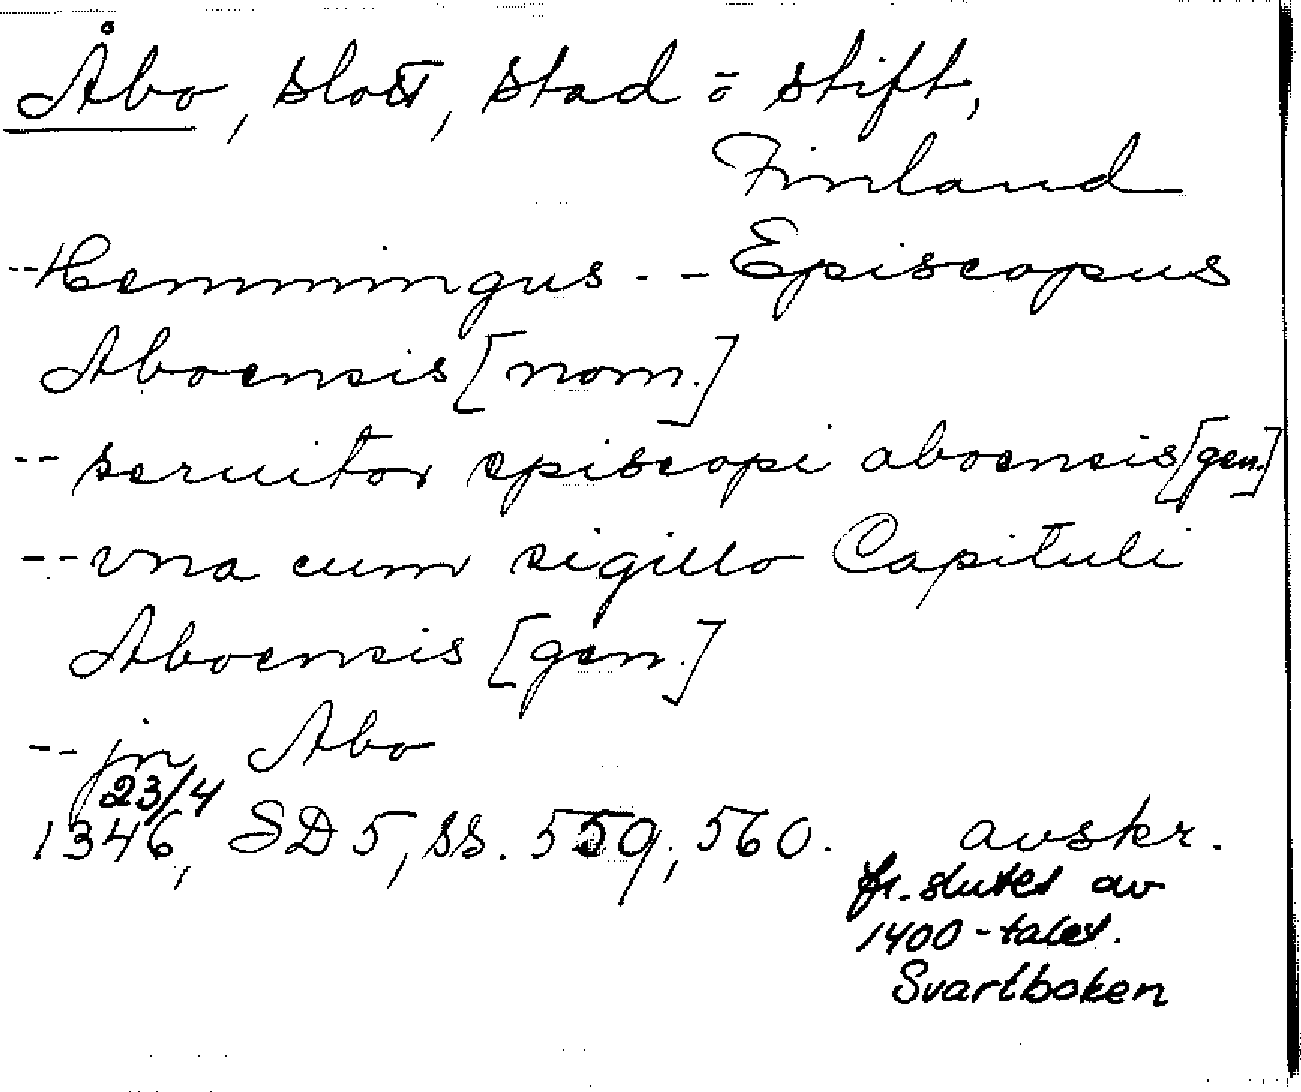 Åbo, slott, stad o stift,
Finland
--Hemmingus -- Episcopus
Aboensis [nom.]
-- seruitor episcopi aboensis [gen.]
-- vna cum sigillo Capituli
Aboensis [gen.]
-- jn Abo
23/4
1346, SD 5, ss. 559, 560. avskr.
fr. slutet av
1400-talet.
Svartboken